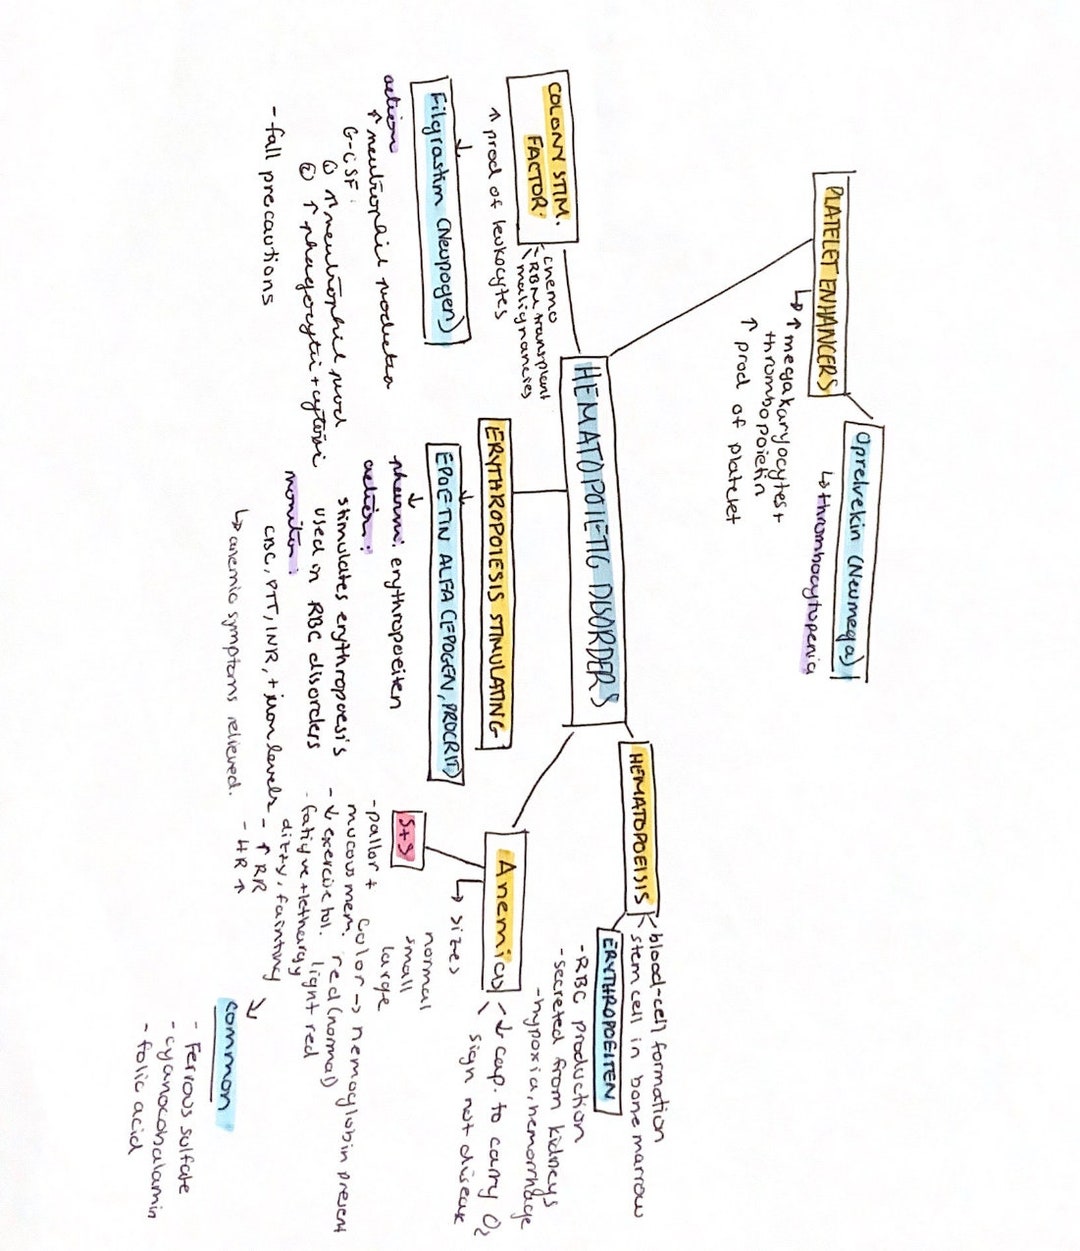 PLATELET ENHANCERS
↳ ↑ megakaryocytes +
thrombopoietin
↑ prod of platelet
Oprelvekin (Neumega)
↳ thrombocytopenia
COLONY STIM.
FACTOR.
chemo
RBM transplant
malignancies
↑ prod of leukocytes
Filgrastim (Neupogen)
action
↑ neutrophil production
G-CSF:
① ↑ neutrophil prod
② ↑ phagocytic + cytotoxic
- fall precautions
HEMATOPOIETIC DISORDERS
ERYTHROPOIESIS STIMULATING
EPOETIN ALFA (EPOGEN, PROCRIT)
pharm: erythropoeiten
action:
stimulates erythropoesis
used in RBC disorders
monitor:
CBC, PTT, INR, + iron levels
↳ anemia symptoms relieved.
HEMATOPOEISIS
blood-cell formation
stem cell in bone marrow
ERYTHROPOEITEN
- RBC production
- secreted from kidneys
- hypoxia, hemorrhage
Anemias
- ↓ cap. to carry O2
sign not disease
↳ sizes
normal
small
large
S+S
- pallor +
mucous mem.
- ↓ exercise tol.
- fatigue + lethargy
dizzy, fainting
- ↑ RR
- HR ↑
color → hemoglobin present
red (normal)
light red
common
- Ferrous sulfate
- cyanocobalamin
- folic acid